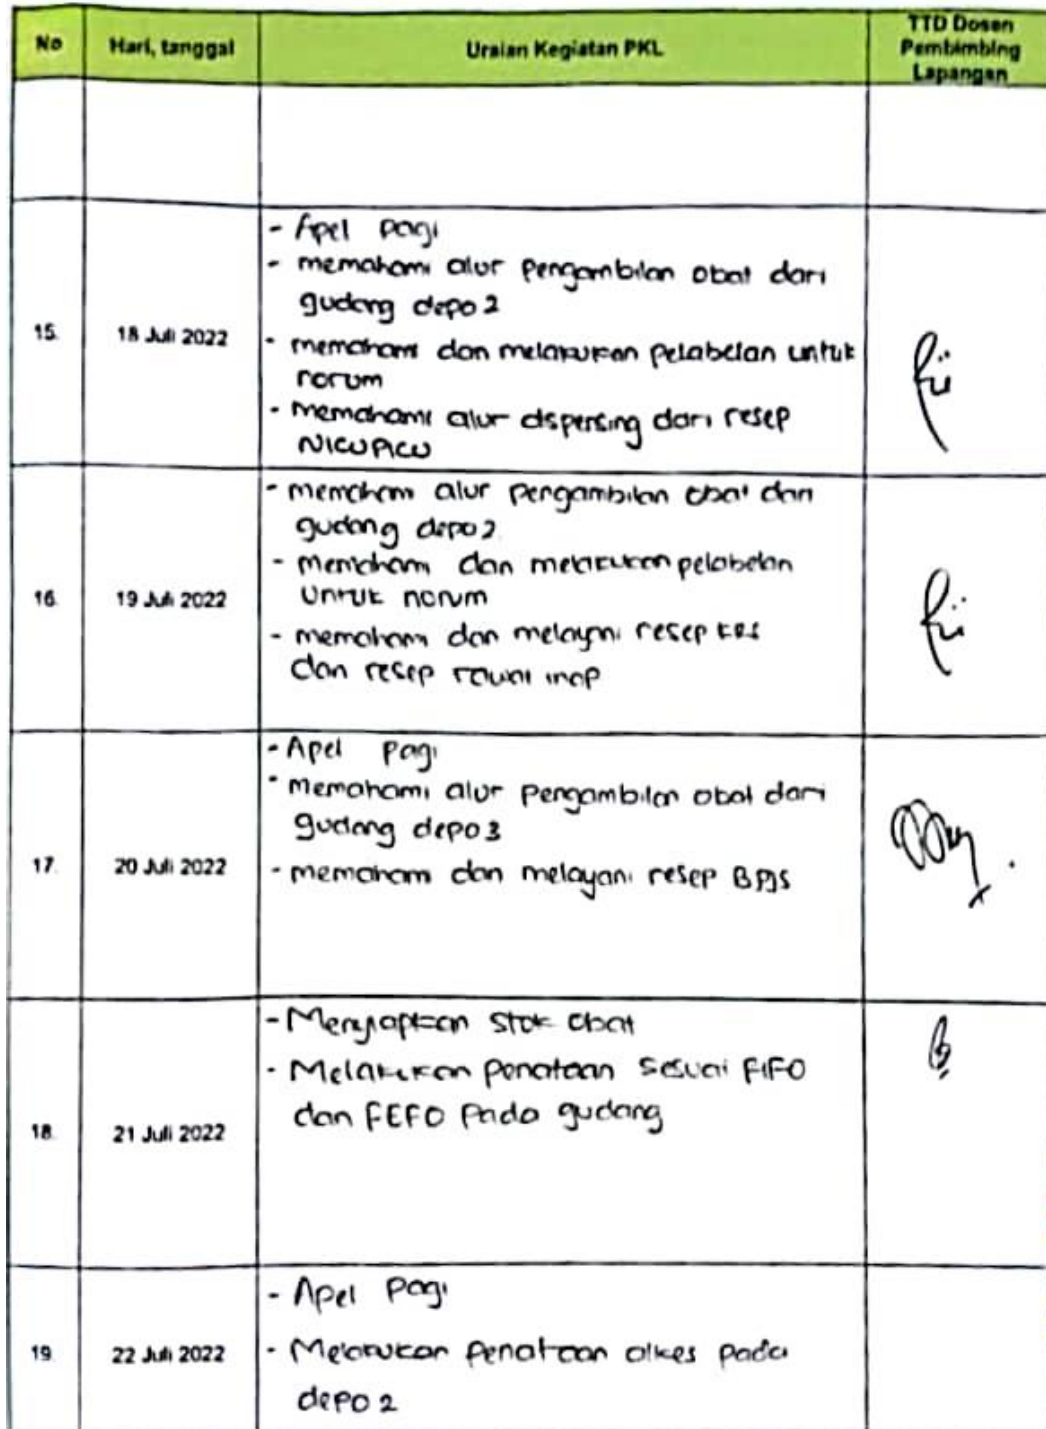 No
Hari, tanggal
Uraian Kegiatan PKL
TTD Dosen
Pembimbing
Lapangan
15.
18 Juli 2022
- Apel pagi
- memahami alur pengambilan obat dari
gudang depo 2
- memahami dan melakukan pelabelan untuk
norum
- memahami alur dispensing dari resep
NICU PICU
16.
19 Juli 2022
- memahami alur pengambilan obat dari
gudang depo 2
- memahami dan melakukan pelabelan
untuk norum
- memahami dan melayani resep KRS
dan resep rawat inap
17.
20 Juli 2022
- Apel pagi
- memahami alur pengambilan obat dari
gudang depo 3
- memahami dan melayani resep BPJS
18.
21 Juli 2022
- Menyiapkan stok obat
- Melakukan penataan sesuai FIFO
dan FEFO pada gudang
19
22 Juli 2022
- Apel pagi
- Melakukan penataan alkes pada
depo 2